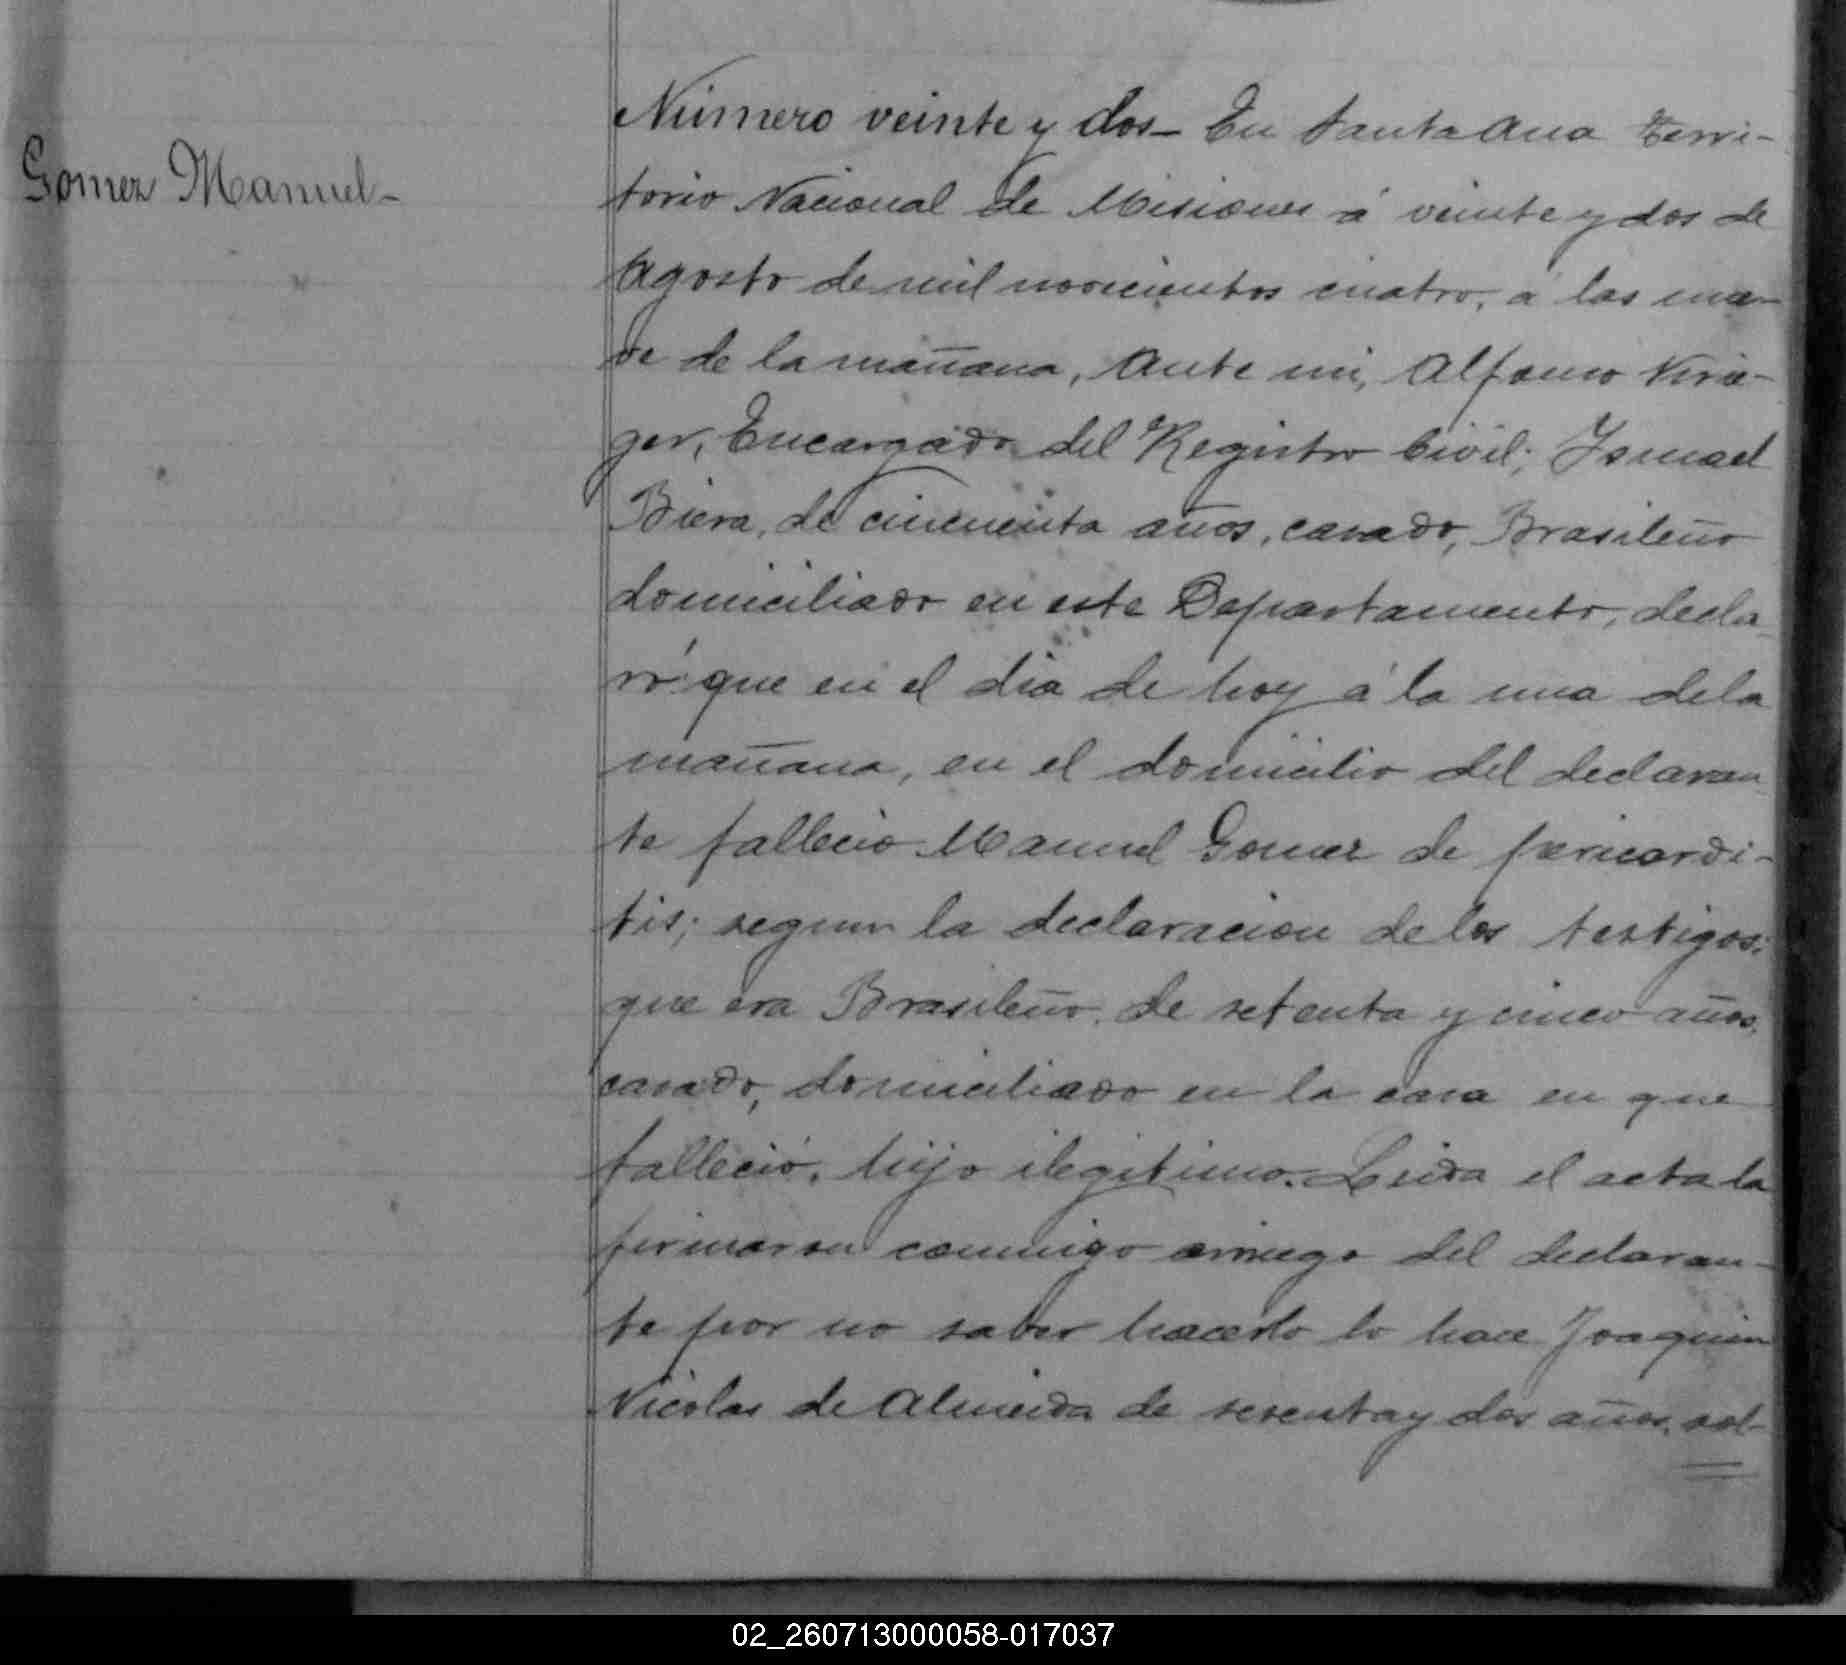 Gomez Manuel-
Número veinte y dos- En Santa Ana Terri-
torio Nacional de Misiones á veinte y dos de
Agosto de mil novecientos cuatro, á las nue-
ve de la mañana, Ante mi, Alfonso Krie-
ger, Encargado del Registro Civil; Ismael
Biera, de cincuenta años, casado, Brasileño
domiciliado en este Departamento, decla-
ró que en el dia de hoy á la una de la
mañana, en el domicilio del declaran
te fallecio Manuel Gomez de pericardi-
tis; segun la declaracion de los testigos;
que era Brasileño, de setenta y cinco años,
casado, domiciliado en la casa en que
falleció, hijo ilegitimo. Leida el acta la
firmaron conmigo aruego del declaran-
te por no saber hacerlo lo hace Joaquin
Nicolas de Almeida de sesenta y dos años, sol-
02_260713000058-017037